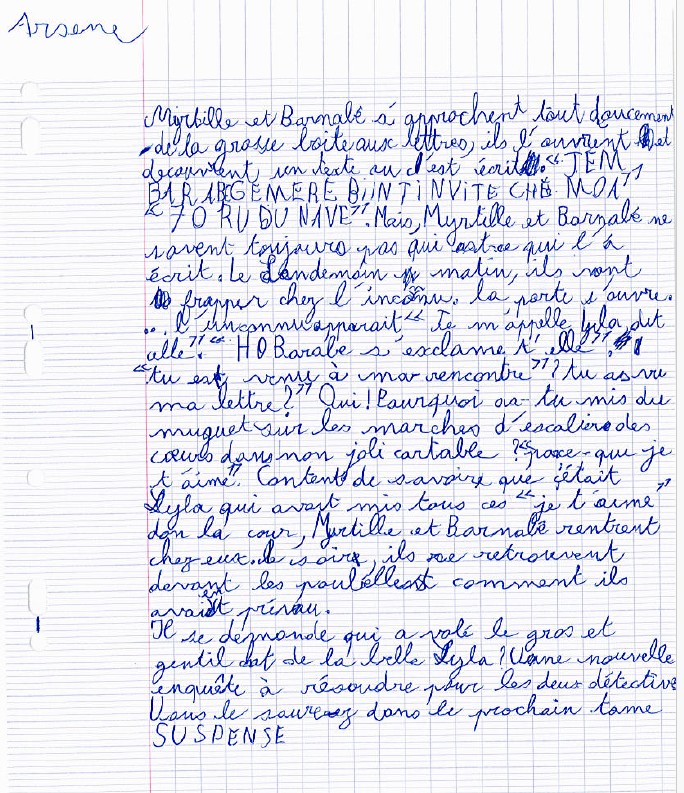 Arsene
Myrtille et Barnabé s'approchent tout doucement
de la grosse boite aux lettres, ils l'ouvrent et
decouvrent un texte ou c'est écrit « JEM
BARABGEMERE BiINTiNVITE CHÉ MOA"
« 70 RU DU NAVE". Mais, Myrtille et Barnabé ne
savent toujours pas qui astce qui l'à
écrit. Le Lendemain matin, ils vont
frapper chez l'inconu. la porte s'ouvre.
... l'unconnu apparait " Je m'appelle Lyla dit
elle" " HO Barabé s'exclame t'elle"
"tu est venu à ma rencontre"? tu as vu
ma lettre?" Oui! Pourquoi as-tu mis du
muguet sur les marches d'escalier des
cœurs dans mon joli cartable ? "parce-que je
t'aime". Content de savoire que c'était
Lyla qui avait mis tous ces " je t'aime"
dan la cour, Myrtille et Barnabé rentrent
chez eux. Le soire, ils se retrouvent
devant les poubelles comment ils
avaient prévau.
Il se démande qui a volé le gros et
gentil chat de la belle Lyla ? Uane nouvelle
enquête à résoudre pour les deux détective
Vous le saurez dans le prochain tome
SUSPENSE